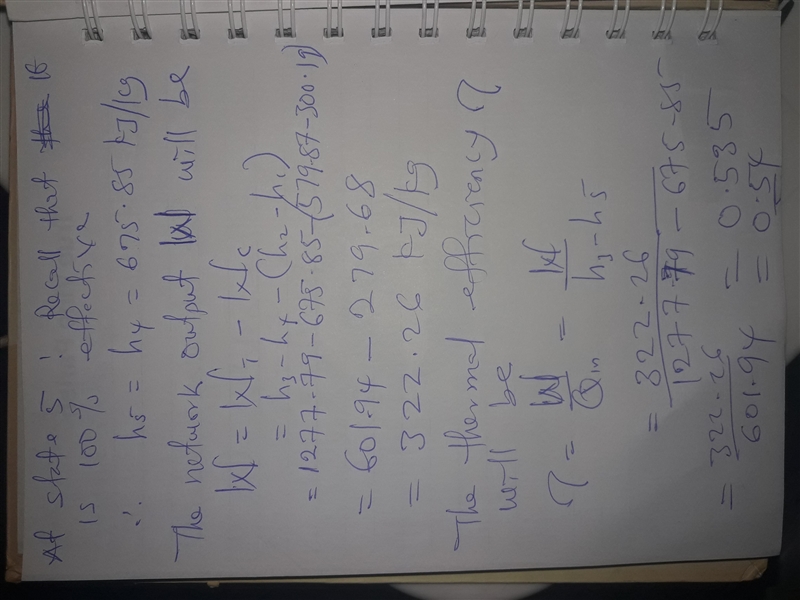 At state 5 : Recall that it
is 100% effective
∴ h5 = h4 = 675.85 kJ/kg
The network output W will be
W = W_T - W_C
= h3-h4 - (h2-h1)
= 1277.79-675.85-(579.87-300.19)
= 601.94 - 279.68
= 322.26 kJ/kg
The thermal efficiency η
will be
η = W/Qin = W/h3-h5
= 322.26/1277.79-675.85
= 322.26/601.94 = 0.535
= 0.54